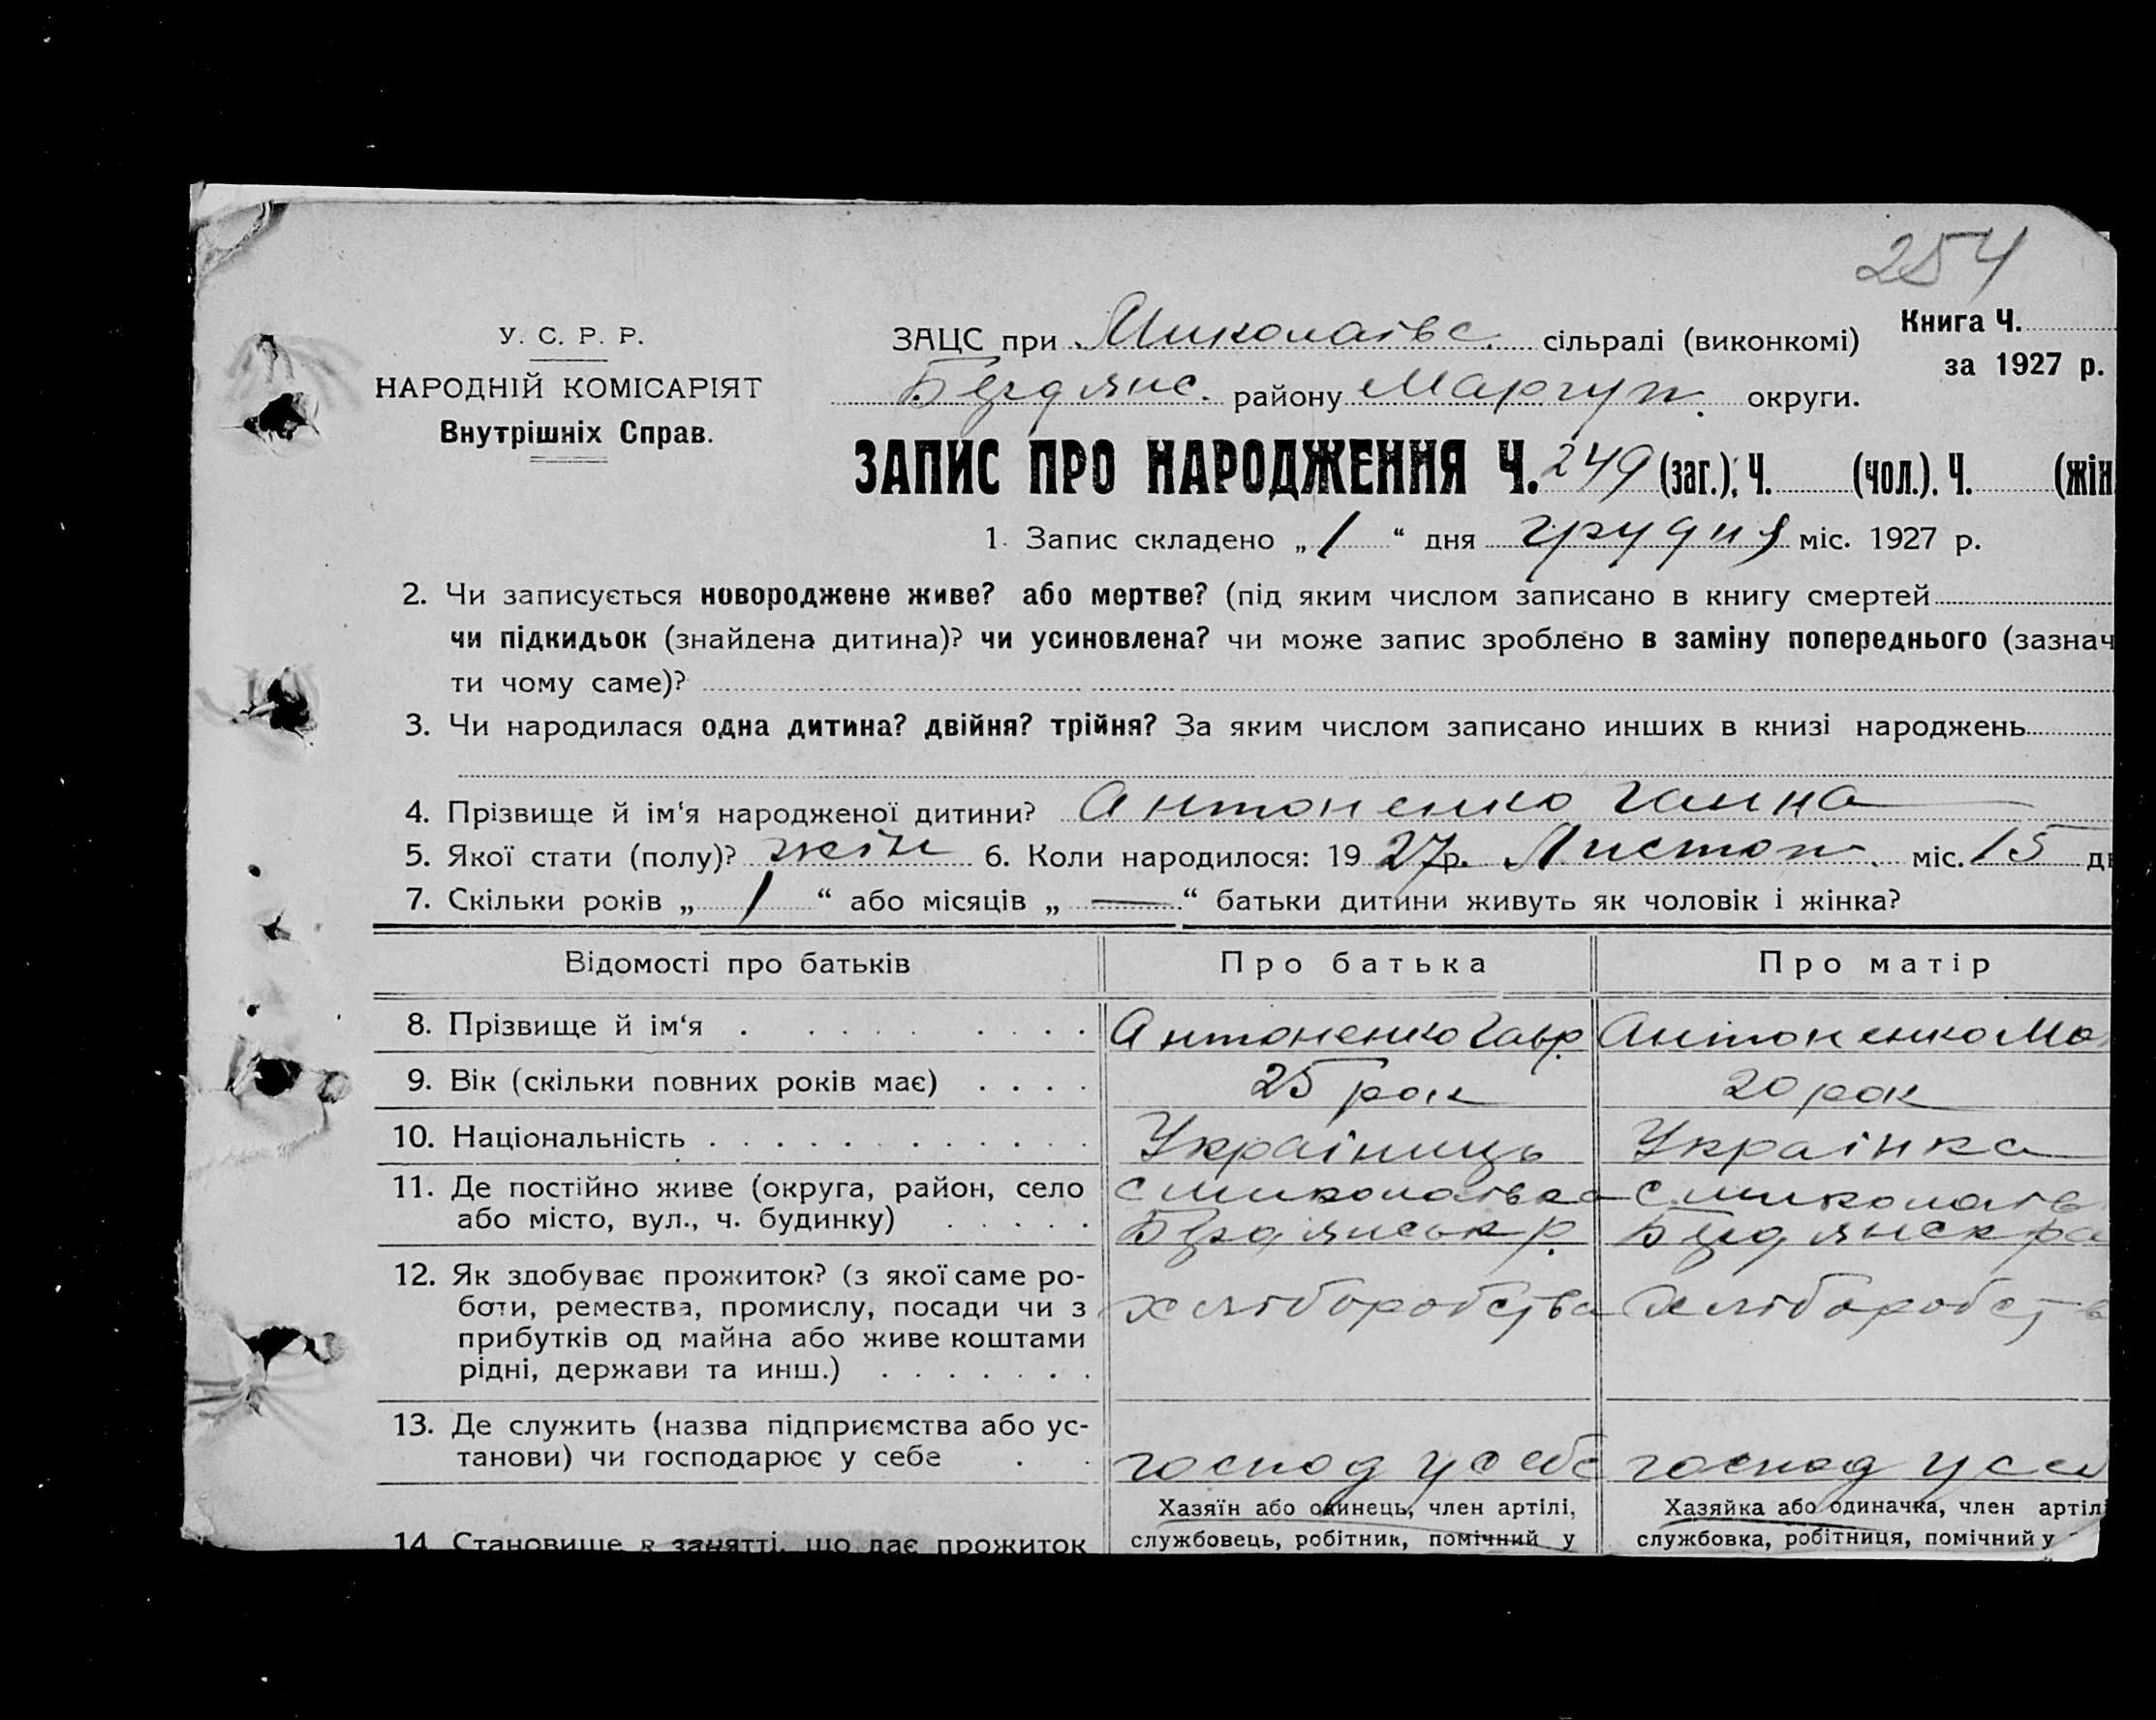 254
У. С. Р. Р.
НАРОДНІЙ КОМІСАРІЯТ
Внутрішніх Справ.
ЗАЦС при Миколаівс. сільраді (виконкомі)
Бердянс. району Маріуп. округи.
Книга Ч.
за 1927 р.
ЗАПИС ПРО НАРОДЖЕННЯ Ч. 249 (заг.), Ч. (чол.). Ч. (жін
1. Запис складено „ 1 “ дня грудня міс. 1927 р.
2. Чи записується новороджене живе? або мертве? (під яким числом записано в книгу смертей
чи підкидьок (знайдена дитина)? чи усиновлена? чи може запис зроблено в заміну попереднього (зазнач
ти чому саме)?
3. Чи народилася одна дитина? двійня? трійня? За яким числом записано инших в книзі народжень
4. Прізвище й ім‘я народженої дитини? Антоненко Ганна
5. Якої стати (полу)? жін 6. Коли народилося: 19 27 р. Листоп. міс. 15 дн
7. Скільки років „ 1 “ або місяців „ — “ батьки дитини живуть як чоловік і жінка?
Відомості про батьків Про батька Про матір
8. Прізвище й ім‘я Антоненко Гавр. Антоненко Ма
9. Вік (скільки повних років має) 25 рок 20 рок
10. Національність Украінець Украінка
11. Де постійно живе (округа, район, село с Миколаівка с Миколаів
або місто, вул., ч. будинку) Бердянськ р. Бердянск ра
12. Як здобуває прожиток? (з якої саме ро-
боти, ремества, промислу, посади чи з хліборобства хліборобств
прибутків од майна або живе коштами
рідні, держави та инш.)
13. Де служить (назва підприємства або ус-
танови) чи господарює у себе господ у себе господ у себ
Хазяїн або одинець, член артілі, Хазяйка або одиначка, член артілі
14. Становище в занятті, що дає прожиток службовець, робітник, помічний у службовка, робітниця, помічний у